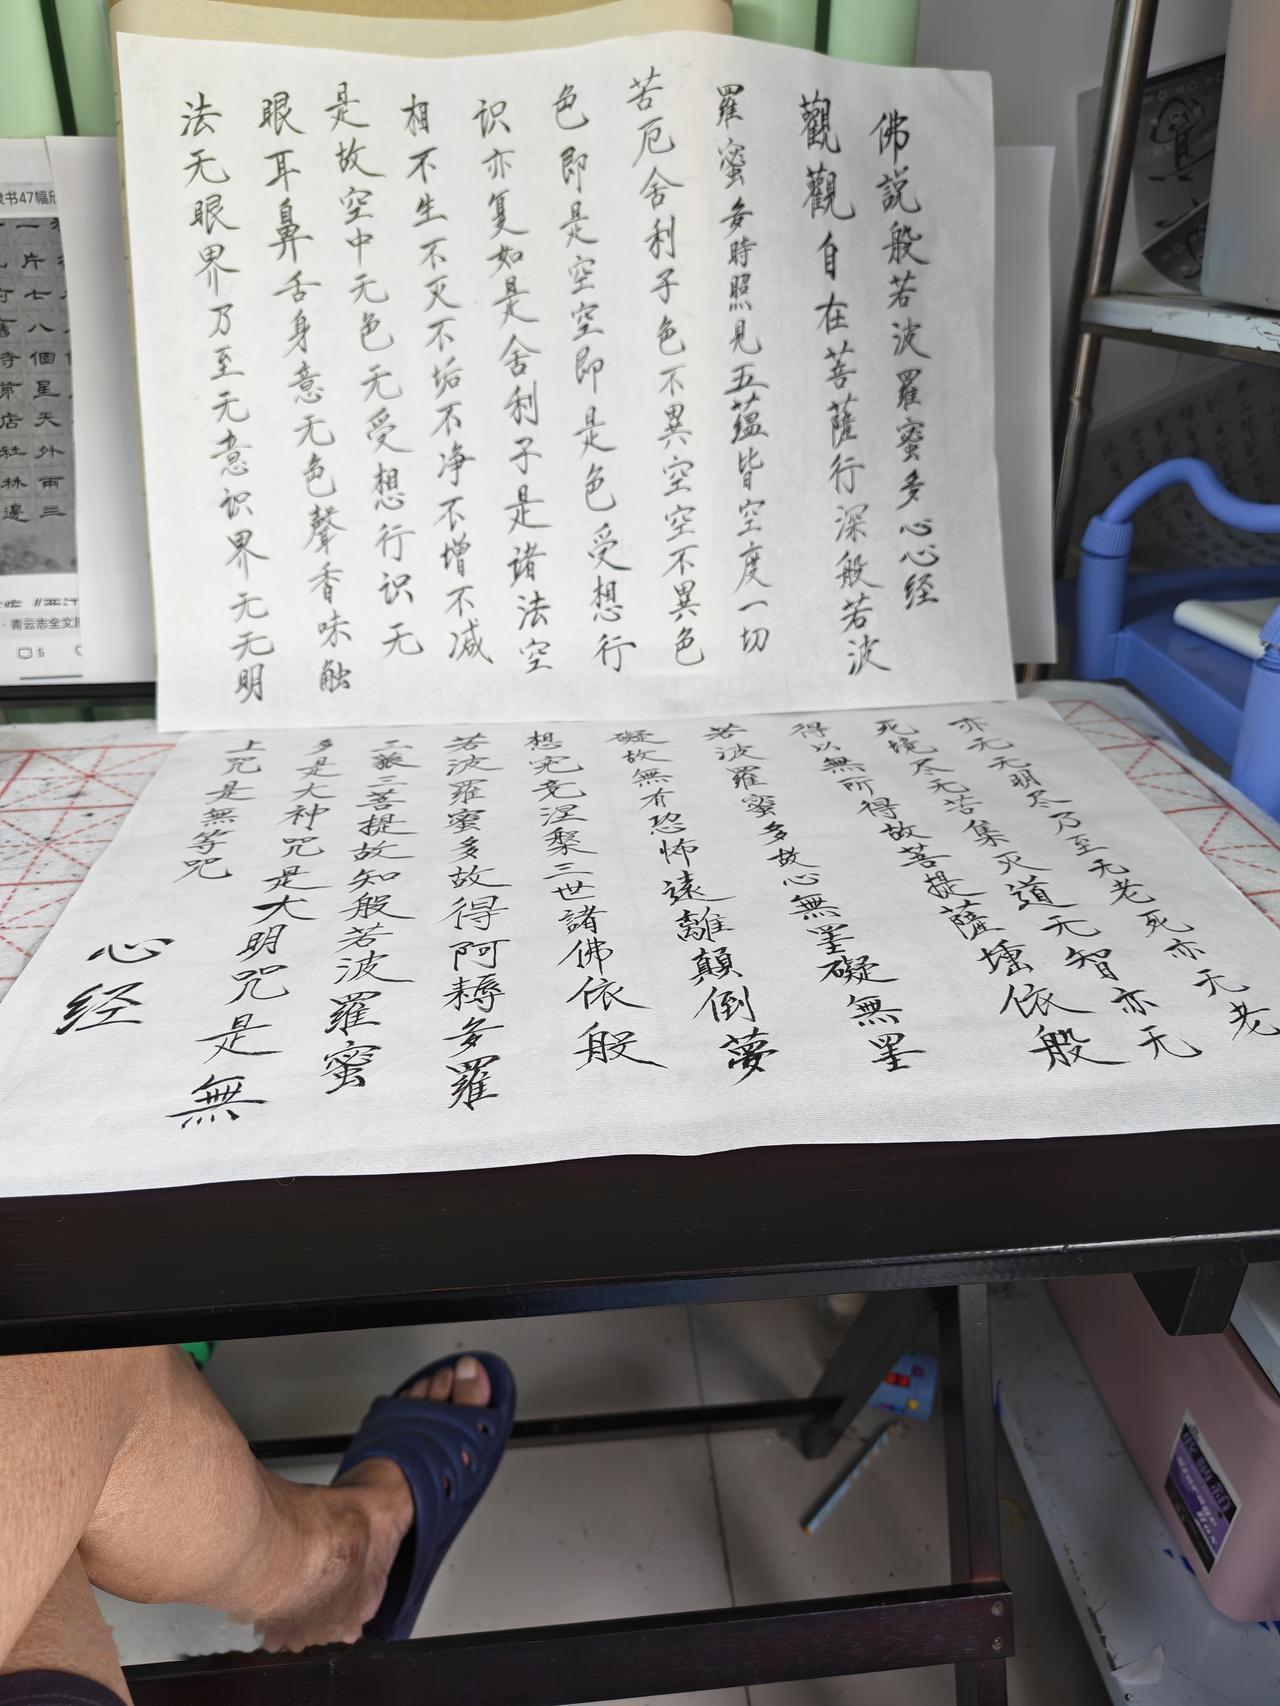 佛説般若波羅蜜多心心经
觀觀自在菩薩行深般若波
羅蜜多時照見五蕴皆空度一切
苦厄舍利子色不異空空不異色
色即是空空即是色受想行
识亦复如是舍利子是诸法空
相不生不灭不垢不净不增不减
是故空中无色无受想行识无
眼耳鼻舌身意无色聲香味触
法无眼界乃至无意识界无无明
亦无无明尽乃至无老死亦无老
死境尽无苦集灭道无智亦无
得以無所得故菩提薩埵依般
若波羅蜜多故心無罣礙無罣
礙故無有恐怖遠離顛倒夢
想究竟涅槃三世諸佛依般
若波羅蜜多故得阿耨多羅
三藐三菩提故知般若波羅蜜
多是大神咒是大明咒是無
上咒是無等咒
心经
隶书47幅
片七八個星天外雨三
店社林邊
青云志全文
5
收納箱
Storage Box